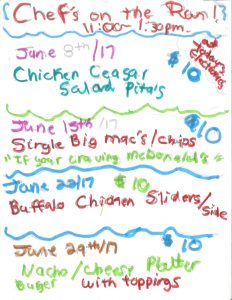 Chef's on the Run!
11:00 - 1:30pm.
June 8th/17
Chicken Ceasar
Salad Pita's
$10
June 15th/17 $10
Single Big mac's/chips
"If your craving mcDonald's"
June 22/17 $10
Buffalo Chicken Sliders/side
June 29th/17 $10
Nacho/cheesy Platter
Buger with toppings